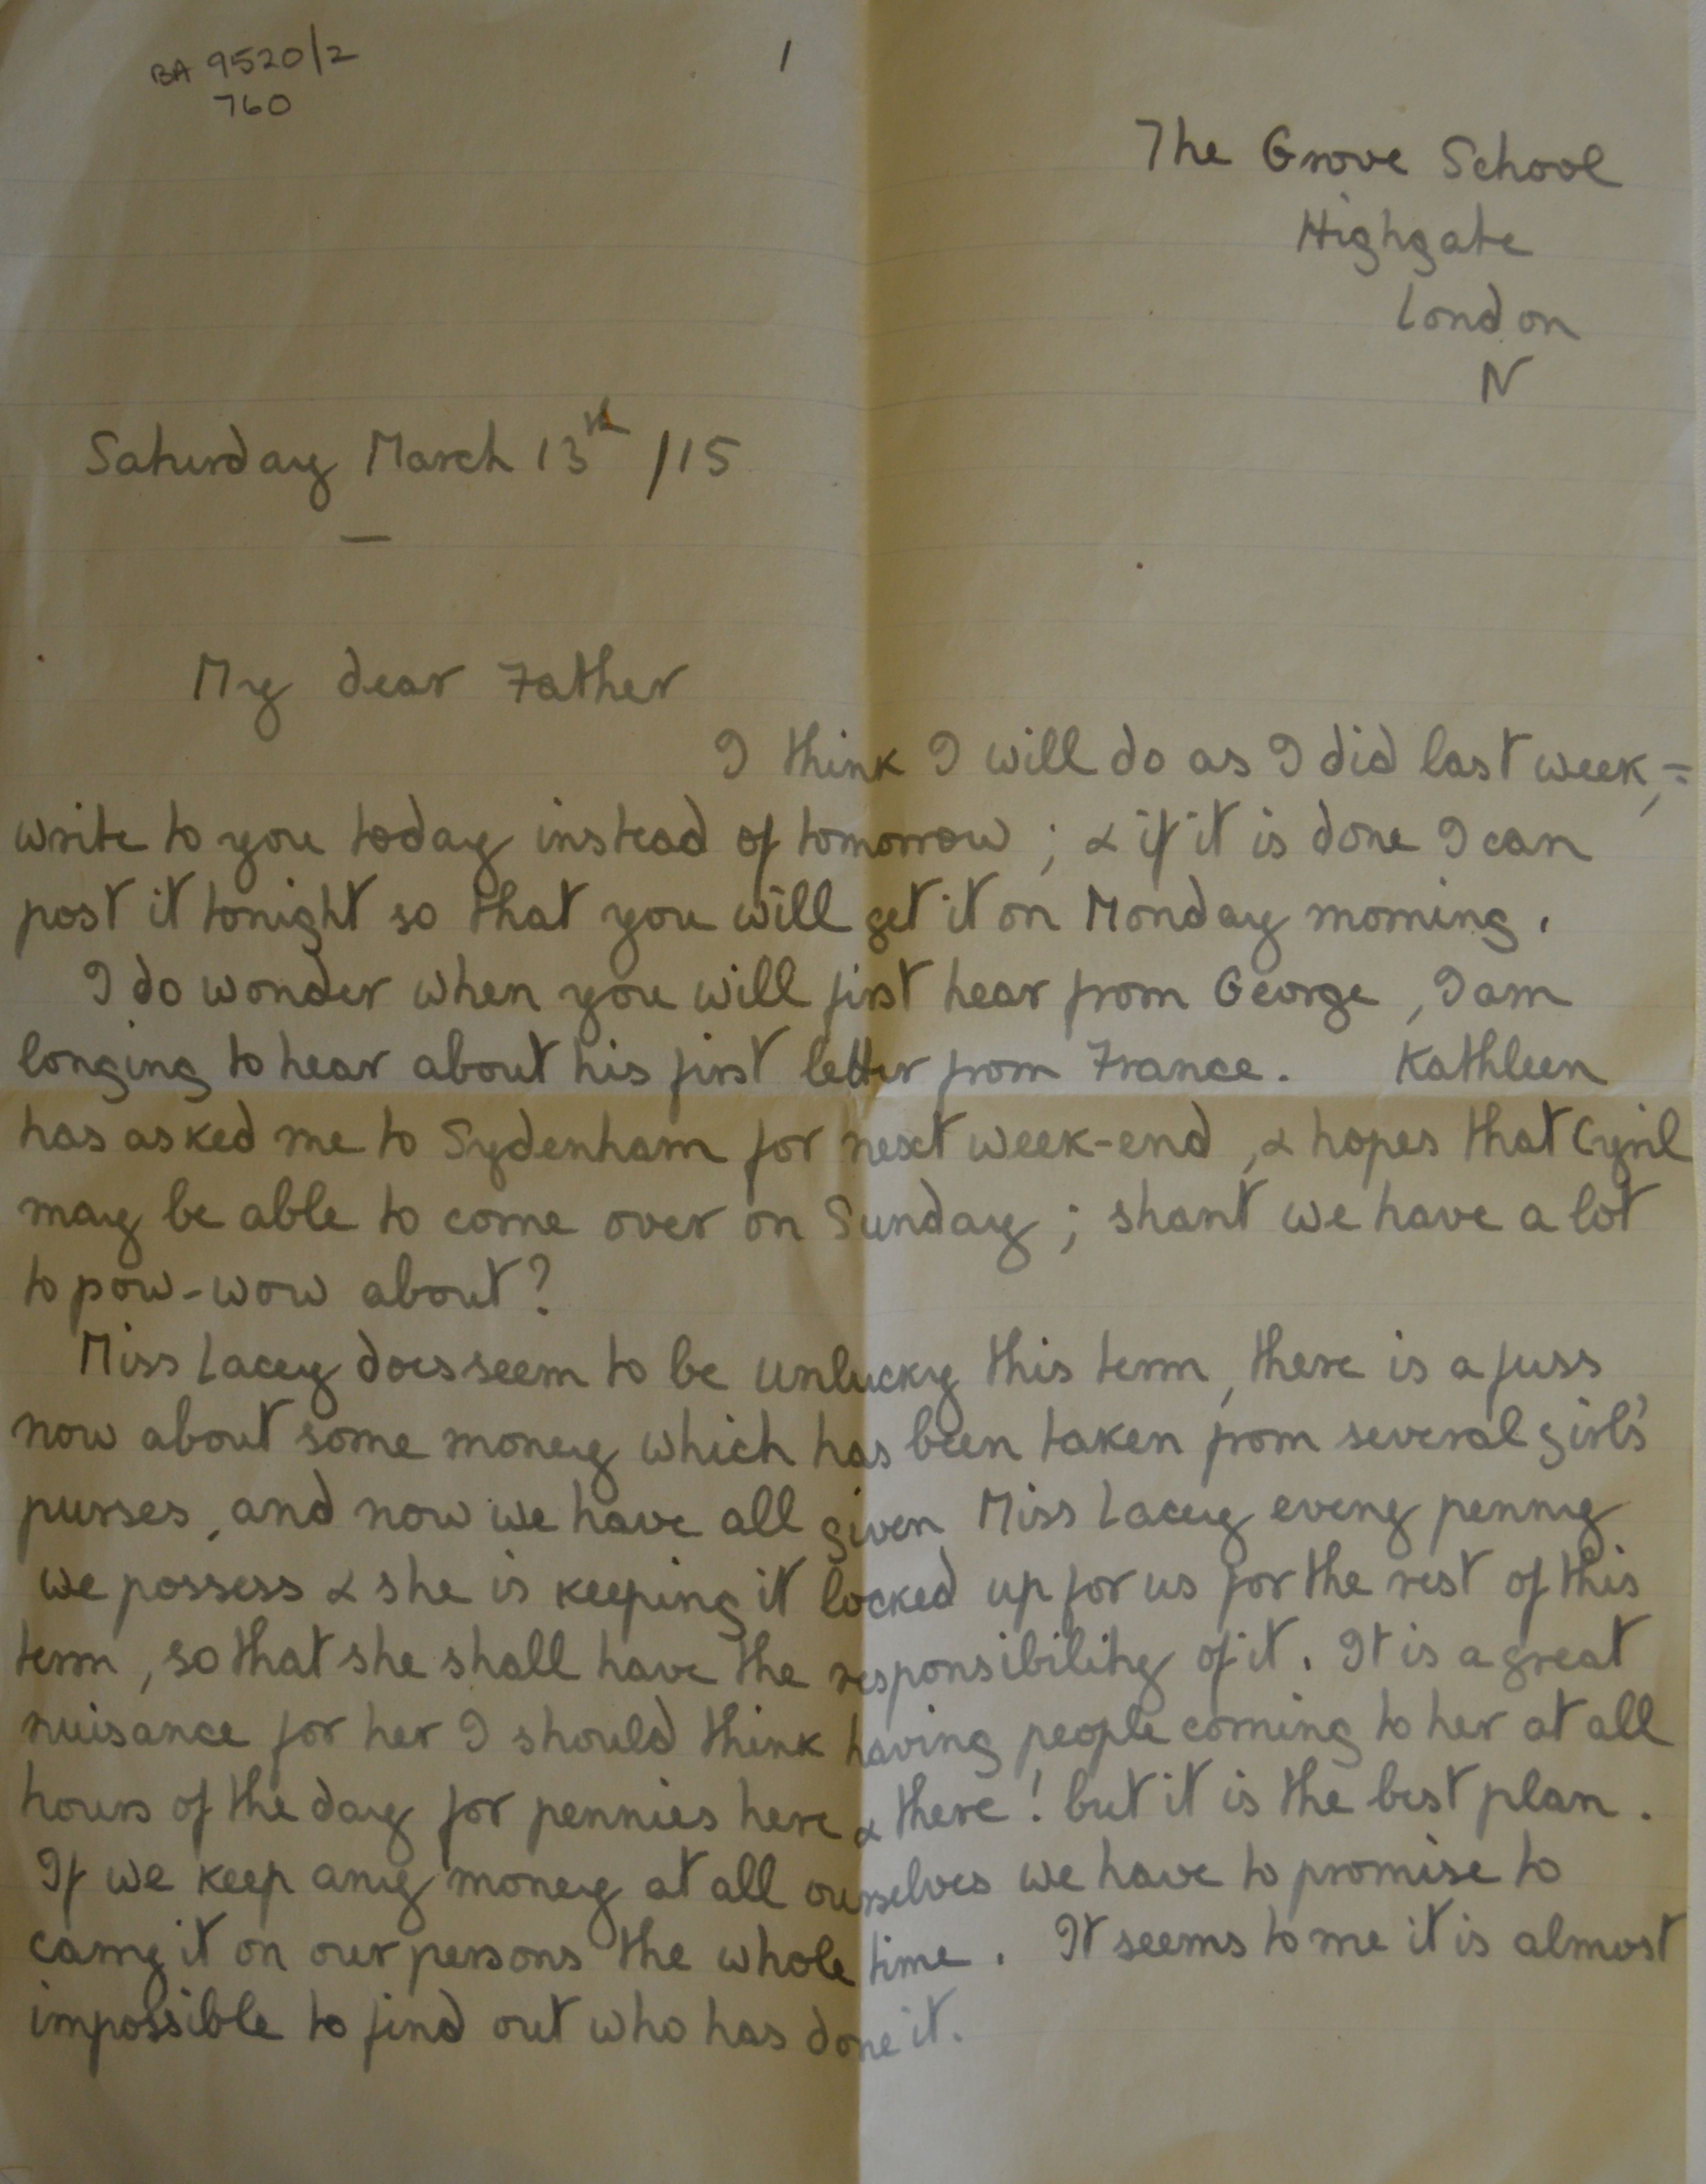 BA 9520/2
760
1
The Grove School
Highgate
London
N
Saturday March 13th /15
My dear Father
I think I will do as I did last week, –
write to you today instead of tomorrow ; & if it is done I can
post it tonight so that you will get it on Monday morning .
I do wonder when you will first hear from George , I am
longing to hear about his first letter from France . Kathleen
has asked me to Sydenham for next week-end , & hopes that Cyril
may be able to come over on Sunday ; shant we have a lot
to pow-wow about ?
Miss Lacey does seem to be unlucky this term , there is a fuss
now about some money which has been taken from several girls'
purses , and now we have all given Miss Lacey every penny
we possess & she is keeping it locked up for us for the rest of this
term , so that she shall have the responsibility of it . It is a great
nuisance for her I should think having people coming to her at all
hours of the day for pennies here & there ! but it is the best plan .
If we keep any money at all ourselves we have to promise to
carry it on our persons the whole time . It seems to me it is almost
impossible to find out who has done it .